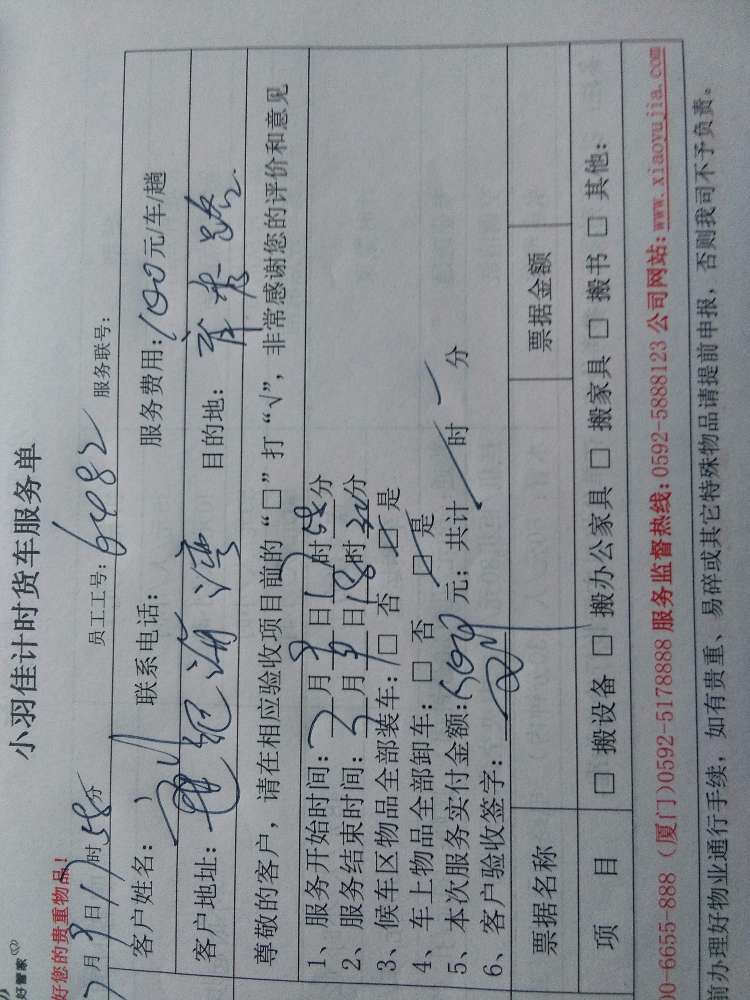 小羽佳计时货车服务单
好管家
好您的贵重物品!
7月9日17时58分 员工工号: 6482 服务联号:
客户姓名: 联系电话: 服务费用: 100元/车/趟
客户地址: 世纪海湾 目的地:
尊敬的客户，请在相应验收项目前的“□”打“√”，非常感谢您的评价和意见
1、服务开始时间: 7月9日17时58分
2、服务结束时间: 7月9日18时30分
3、候车区物品全部装车: □ 否 □ 是
4、车上物品全部卸车: □ 否 □ 是
5、本次服务实付金额: 元; 共计 时 分
6、客户验收签字:
票据名称 票据金额
项 目 □ 搬设备 □ 搬办公家具 □ 搬家具 □ 搬书 □ 其他:
00-6655-888（厦门)0592-5178888 服务监督热线: 0592-5888123 公司网站: www.xiaoyujia.com
前办理好物业通行手续，如有贵重、易碎或其它特殊物品请提前申报，否则我司不予负责。